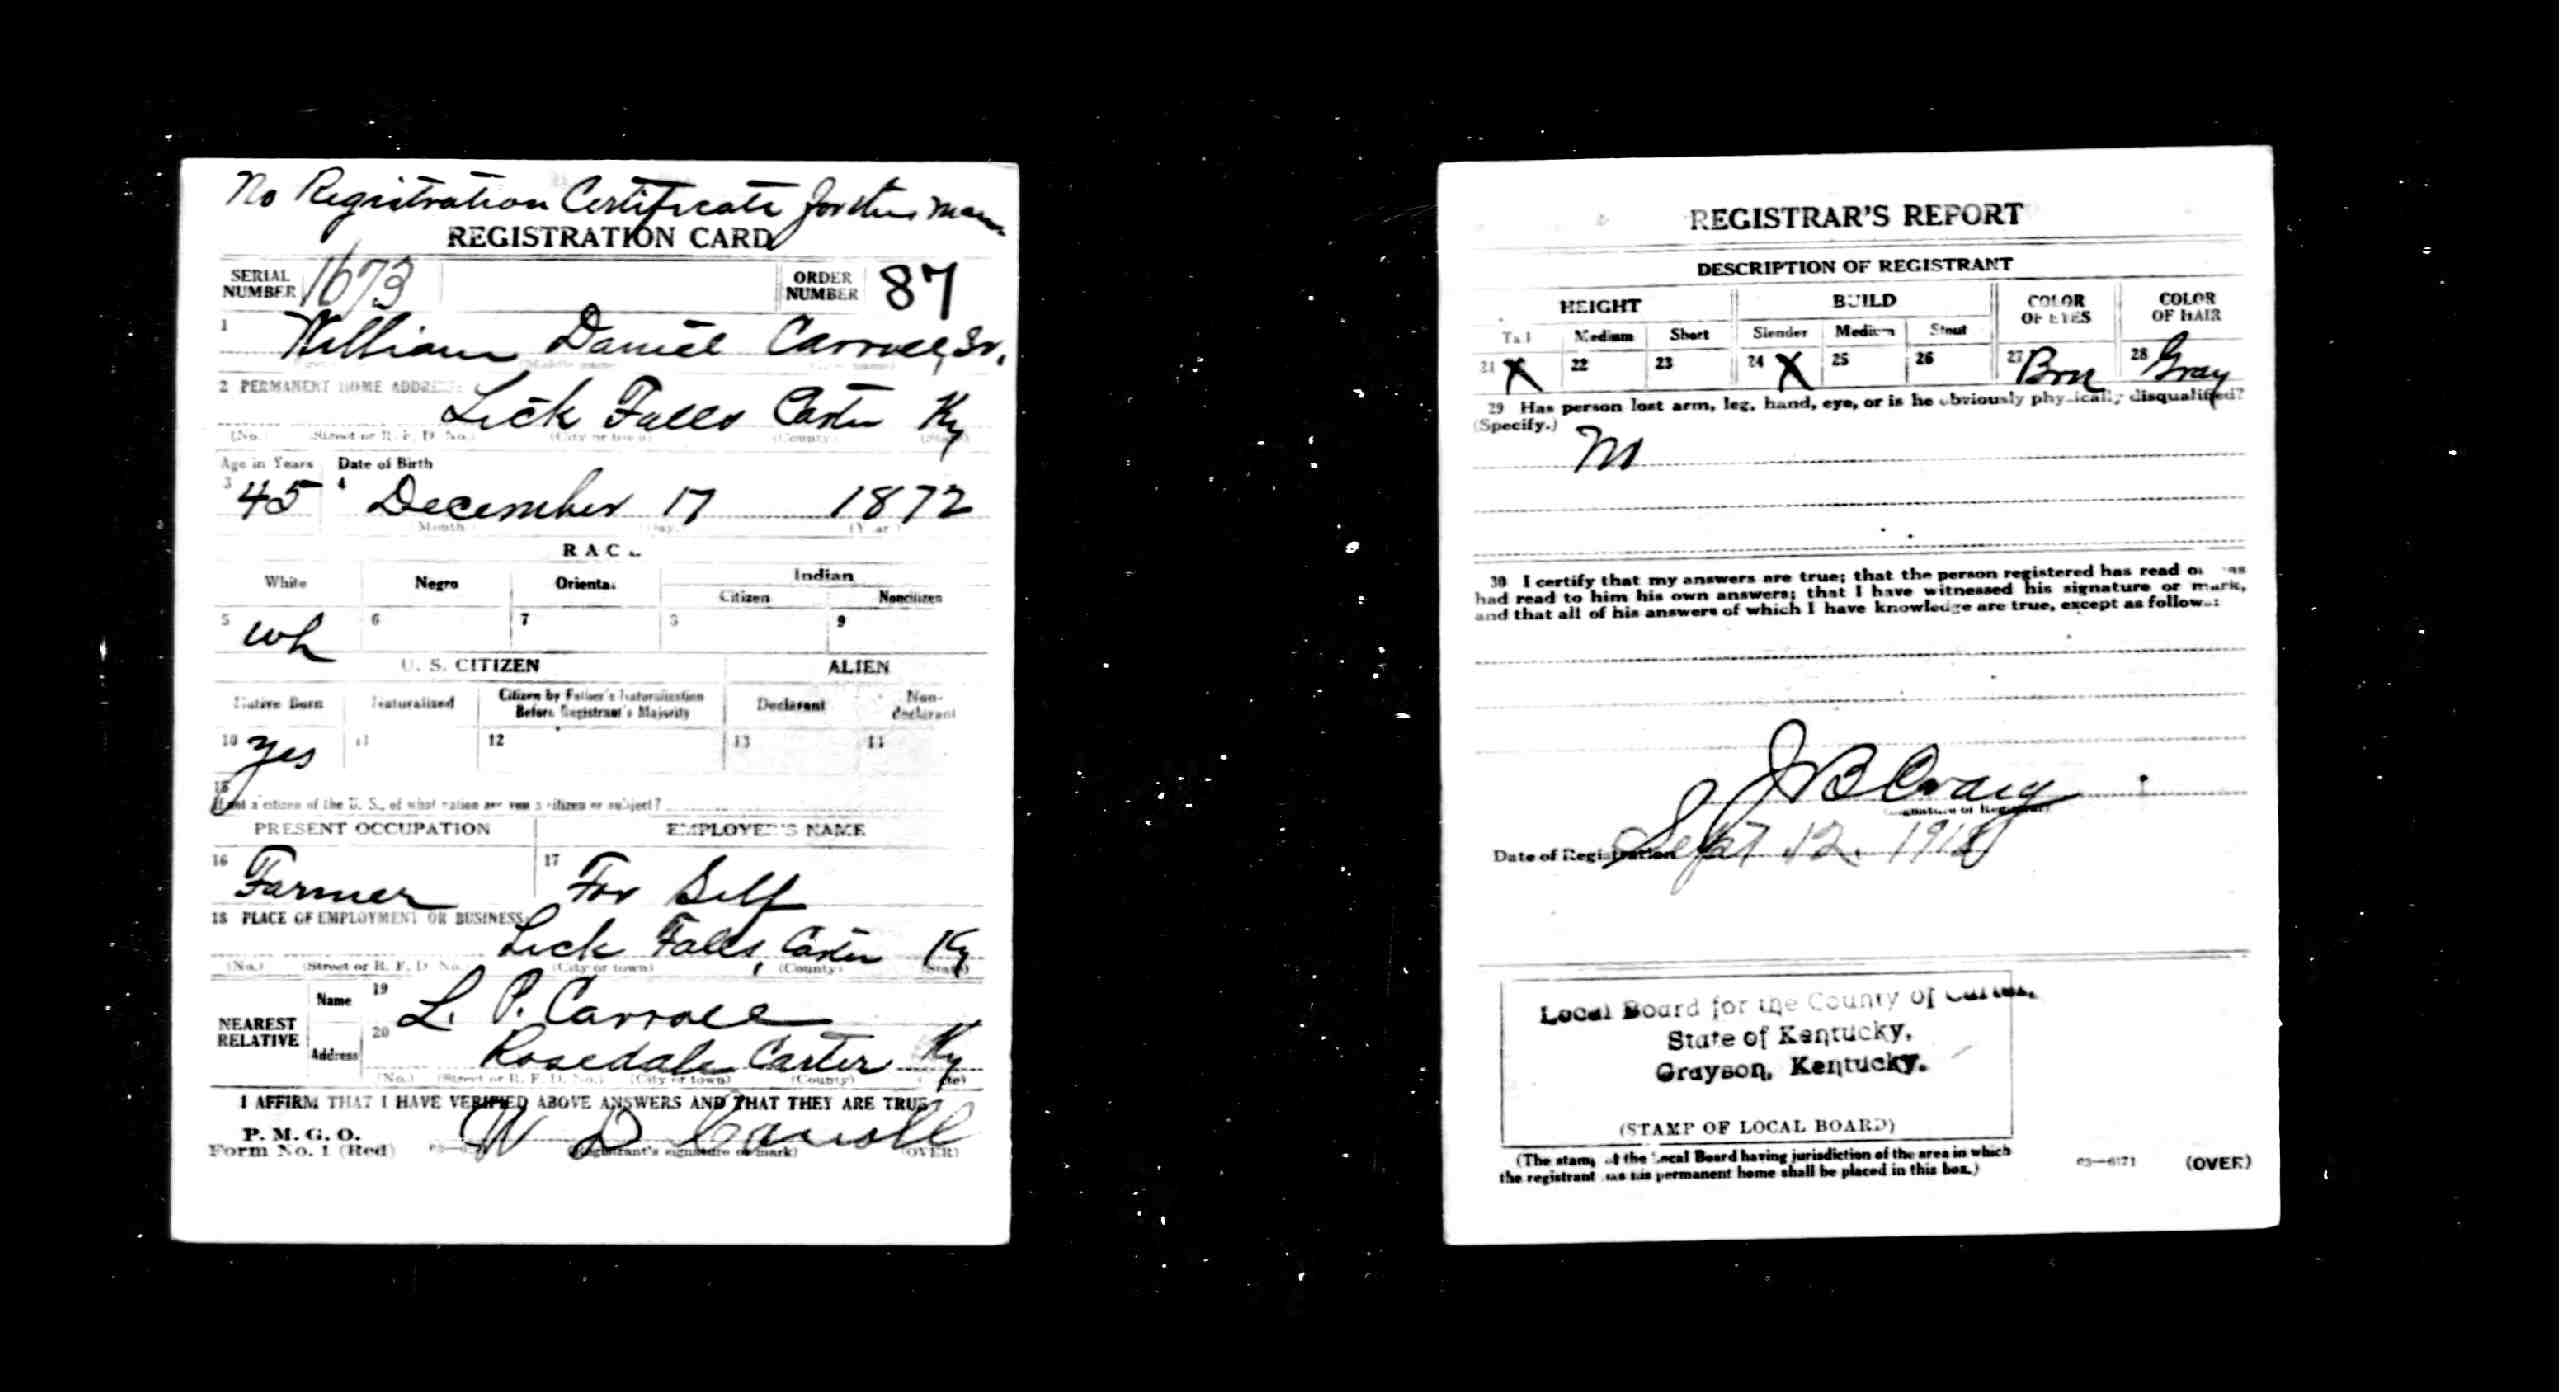 No Registration Certificate for this man
REGISTRATION CARD
SERIAL NUMBER 1673 ORDER NUMBER 87
1 William Daniel Carroll, Sr.
(Middle name)
2 PERMANENT HOME ADDRESS:
Lick Falls Carter Ky
(No.) (Street or R. F. D. No.) (City or town) (County) (State)
Age in Years Date of Birth
3 45 4 December 17 1872
Month Day (Year)
RACE
White Negro Oriental Indian
Citizen Noncitizen
5 wh 6 7 8 9
U. S. CITIZEN ALIEN
Native Born Naturalized Citizen by Father's Naturalization Before Registrant's Majority Declarant Non-declarant
10 yes 11 12 13 14
15
If not a citizen of the U. S., of what nation are you a citizen or subject?
PRESENT OCCUPATION EMPLOYER'S NAME
16 Farmer 17 For Self
18 PLACE OF EMPLOYMENT OR BUSINESS:
Lick Falls, Carter Ky
(No.) (Street or R. F. D. No.) (City or town) (County) (State)
NEAREST RELATIVE
Name 19 L. P. Carroll
Address 20 Rosedale Carter Ky
(No.) (Street or R. F. D. No.) (City or town) (County) (State)
I AFFIRM THAT I HAVE VERIFIED ABOVE ANSWERS AND THAT THEY ARE TRUE
P. M. G. O.
Form No. 1 (Red) W D Carroll
(Registrant's signature or mark) (OVER)
REGISTRAR'S REPORT
DESCRIPTION OF REGISTRANT
HEIGHT BUILD COLOR OF EYES COLOR OF HAIR
Tall Medium Short Slender Medium Stout
21 X 22 23 24 X 25 26 27 Brn 28 Gray
29 Has person lost arm, leg, hand, eye, or is he obviously physically disqualified?
(Specify.)
No
30 I certify that my answers are true; that the person registered has read or has
had read to him his own answers; that I have witnessed his signature or mark,
and that all of his answers of which I have knowledge are true, except as follows:
J B Craig
(Signature of Registrar)
Date of Registration Sept 12, 1918
Local Board for the County of Carter,
State of Kentucky,
Grayson, Kentucky.
(STAMP OF LOCAL BOARD)
(The stamp of the Local Board having jurisdiction of the area in which
the registrant has his permanent home shall be placed in this box.)
03—6171 (OVER)